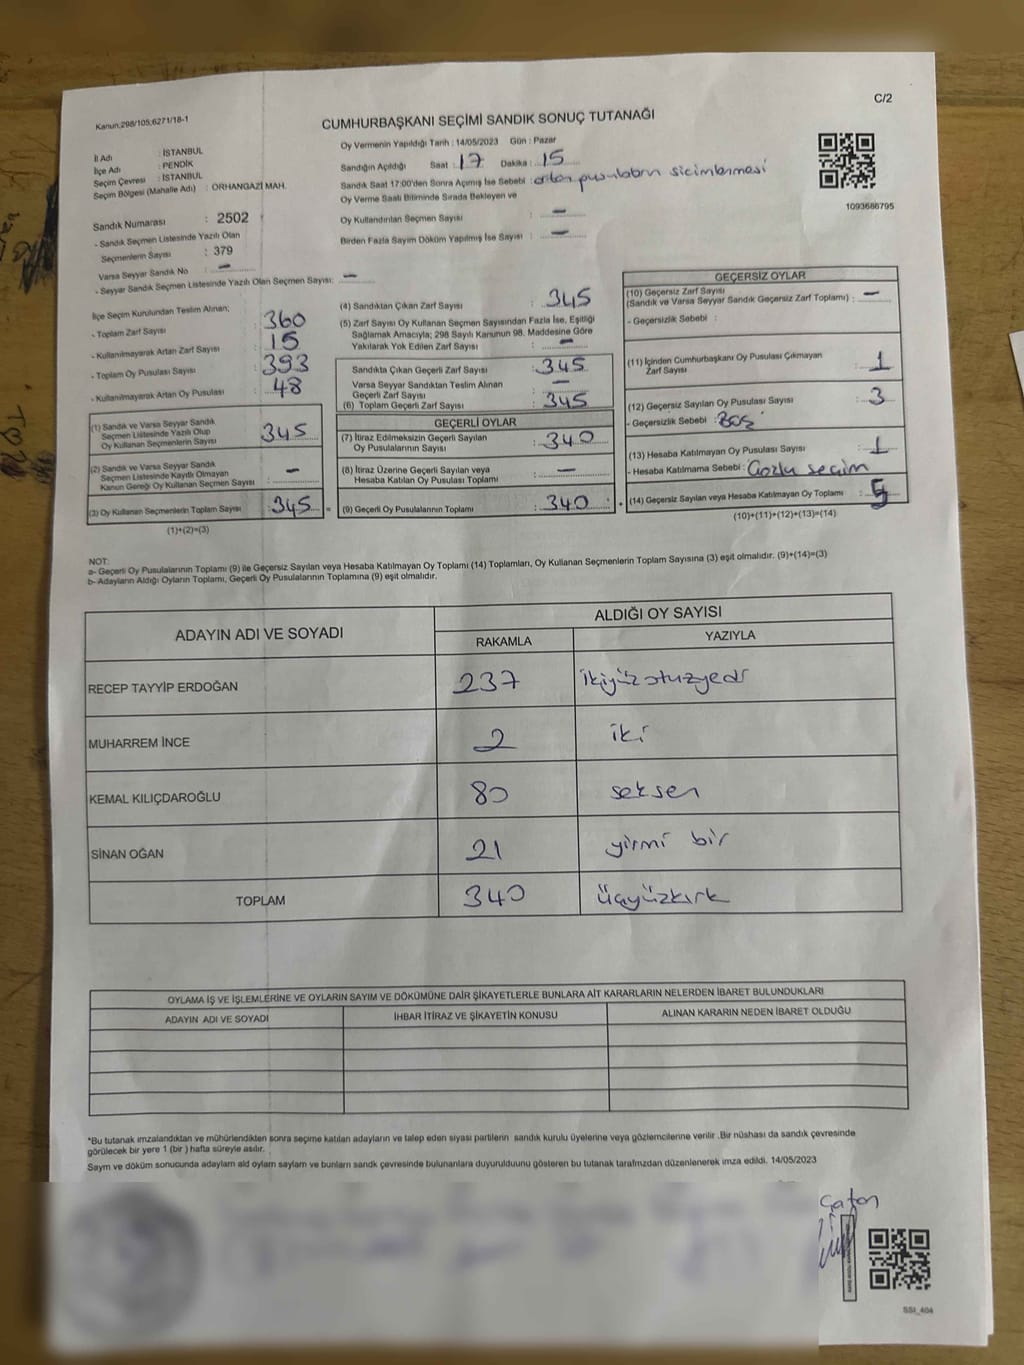 C/2
Kanun:298/105;6271/18-1
CUMHURBAŞKANI SEÇİMİ SANDIK SONUÇ TUTANAĞI
İl Adı : İSTANBUL
İlçe Adı : PENDİK
Seçim Çevresi : İSTANBUL
Seçim Bölgesi (Mahalle Adı) : ORHANGAZİ MAH.
Oy Vermenin Yapıldığı Tarih : 14/05/2023 Gün : Pazar
Sandığın Açıldığı Saat : 17 Dakika : 15
Sandık Saat 17:00'den Sonra Açımış İse Sebebi :
Oy Verme Saati Bitiminde Sırada Bekleyen ve
Oy Kullandırılan Seçmen Sayısı : -
Birden Fazla Sayım Döküm Yapılmış İse Sayısı : -
1093686795
Sandık Numarası : 2502
- Sandık Seçmen Listesinde Yazılı Olan
Seçmenlerin Sayısı : 379
Varsa Seyyar Sandık No : -
- Seyyar Sandık Seçmen Listesinde Yazılı Olan Seçmen Sayısı: -
İlçe Seçim Kurulundan Teslim Alınan;
- Toplam Zarf Sayısı : 360
- Kullanılmayarak Artan Zarf Sayısı : 15
- Toplam Oy Pusulası Sayısı : 393
- Kullanılmayarak Artan Oy Pusulası : 48
(1) Sandık ve Varsa Seyyar Sandık
Seçmen Listesinde Yazılı Olup
Oy Kullanan Seçmenlerin Sayısı : 345
(2) Sandık ve Varsa Seyyar Sandık
Seçmen Listesinde Kayıtlı Olmayan
Kanun Gereği Oy Kullanan Seçmen Sayısı : -
(3) Oy Kullanan Seçmenlerin Toplam Sayısı : 345 =
(1)+(2)=(3)
(4) Sandıktan Çıkan Zarf Sayısı : 345
(5) Zarf Sayısı Oy Kullanan Seçmen Sayısından Fazla İse, Eşitliği
Sağlamak Amacıyla; 298 Sayılı Kanunun 98. Maddesine Göre
Yakılarak Yok Edilen Zarf Sayısı : -
Sandıkta Çıkan Geçerli Zarf Sayısı : 345
Varsa Seyyar Sandıktan Teslim Alınan
Geçerli Zarf Sayısı : -
(6) Toplam Geçerli Zarf Sayısı : 345
GEÇERLİ OYLAR
(7) İtiraz Edilmeksizin Geçerli Sayılan
Oy Pusulalarının Sayısı : 340
(8) İtiraz Üzerine Geçerli Sayılan veya
Hesaba Katılan Oy Pusulası Toplamı : -
(9) Geçerli Oy Pusulalarının Toplamı : 340 +
GEÇERSİZ OYLAR
(10) Geçersiz Zarf Sayısı
(Sandık ve Varsa Seyyar Sandık Geçersiz Zarf Toplamı) : -
- Geçersizlik Sebebi :
(11) İçinden Cumhurbaşkanı Oy Pusulası Çıkmayan
Zarf Sayısı : 1
(12) Geçersiz Sayılan Oy Pusulası Sayısı : 3
- Geçersizlik Sebebi : Boş
(13) Hesaba Katılmayan Oy Pusulası Sayısı : 1
- Hesaba Katılmama Sebebi : seçim
(14) Geçersiz Sayılan veya Hesaba Katılmayan Oy Toplamı : 5
(10)+(11)+(12)+(13)=(14)
NOT:
a- Geçerli Oy Pusulalarının Toplamı (9) ile Geçersiz Sayılan veya Hesaba Katılmayan Oy Toplamı (14) Toplamları, Oy Kullanan Seçmenlerin Toplam Sayısına (3) eşit olmalıdır. (9)+(14)=(3)
b- Adayların Aldığı Oyların Toplamı, Geçerli Oy Pusulalarının Toplamına (9) eşit olmalıdır.
ADAYIN ADI VE SOYADI ALDIĞI OY SAYISI
RAKAMLA YAZIYLA
RECEP TAYYİP ERDOĞAN 237 ikiyüzotuzyedi
MUHARREM İNCE 2 iki
KEMAL KILIÇDAROĞLU 80 seksen
SİNAN OĞAN 21 yirmi bir
TOPLAM 340 üçyüzkırk
OYLAMA İŞ VE İŞLEMLERİNE VE OYLARIN SAYIM VE DÖKÜMÜNE DAİR ŞİKAYETLERLE BUNLARA AİT KARARLARIN NELERDEN İBARET BULUNDUKLARI
ADAYIN ADI VE SOYADI İHBAR İTİRAZ VE ŞİKAYETİN KONUSU ALINAN KARARIN NEDEN İBARET OLDUĞU
*Bu tutanak imzalandıktan ve mühürlendikten sonra seçime katılan adayların ve talep eden siyasi partilerin sandık kurulu üyelerine veya gözlemcilerine verilir .Bir nüshası da sandık çevresinde
görülecek bir yere 1 (bir ) hafta süreyle asılır.
Sayım ve döküm sonucunda adayların ald oyların sayların ve bunların sandk çevresinde bulunanlara duyurulduunu gösteren bu tutanak tarafmzdan düzenlenerek imza edildi. 14/05/2023
SSI_404